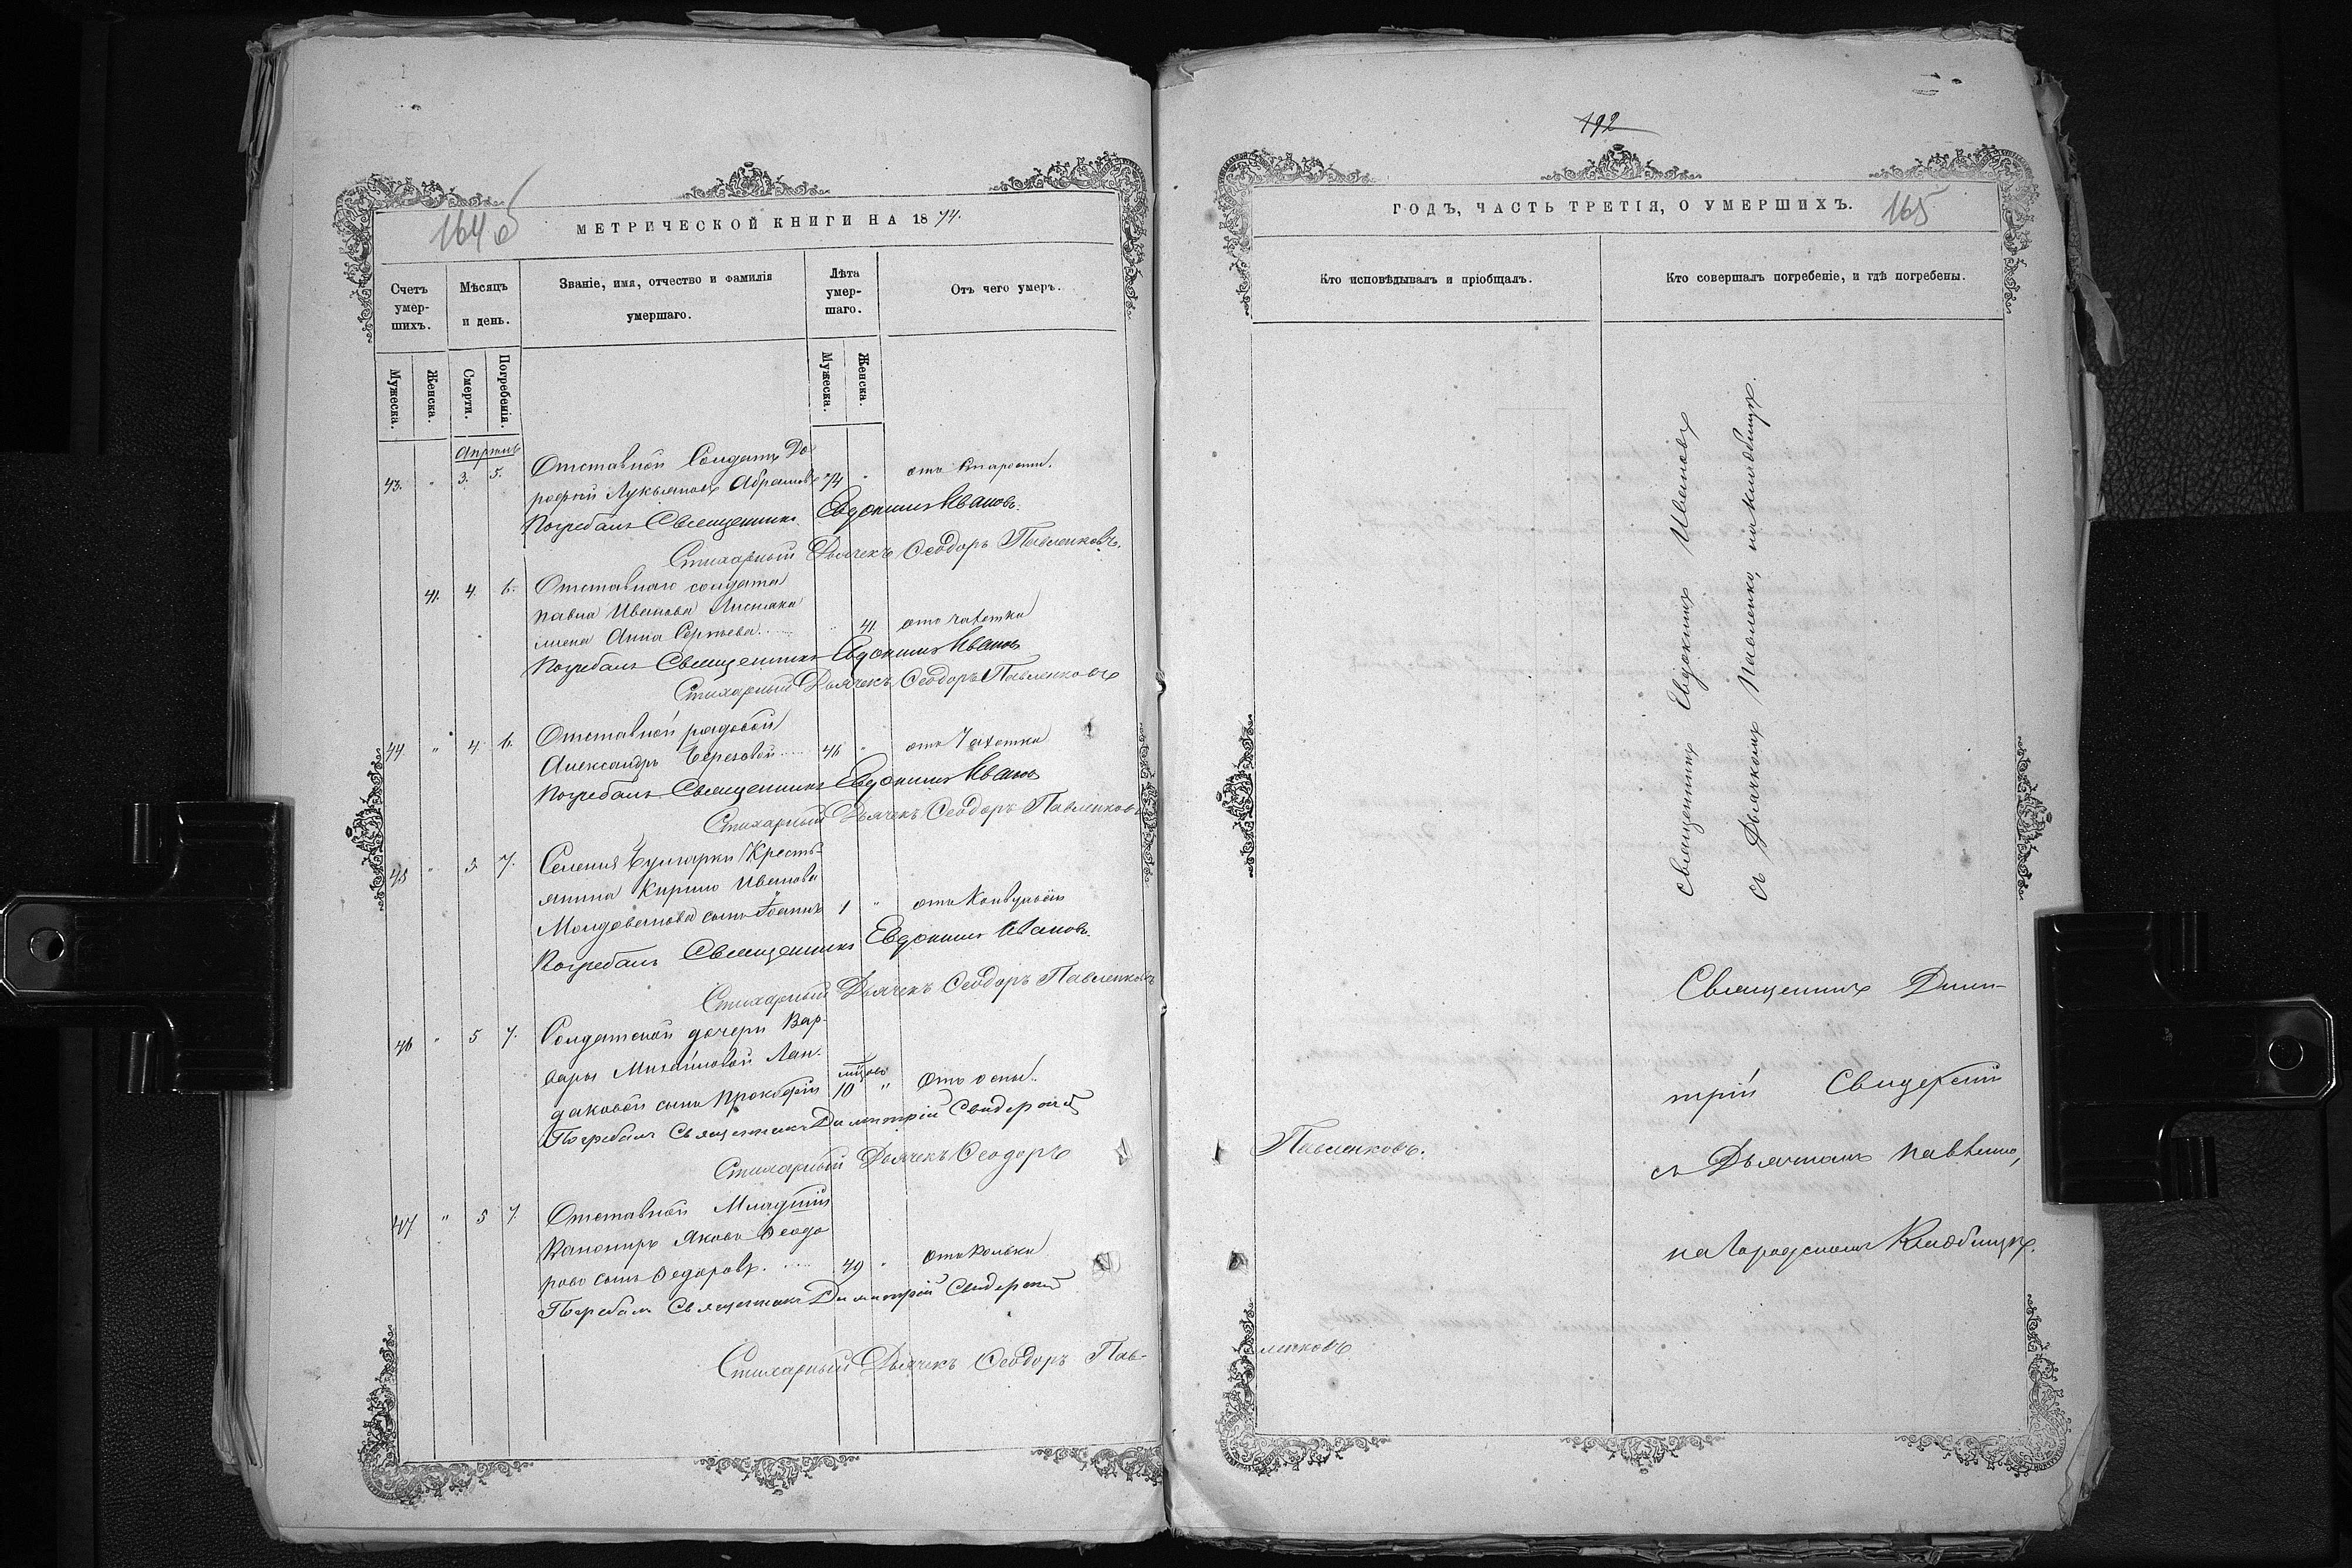 164 об
МЕТРИЧЕСКОЙ КНИГИ НА 1874.
Счетъ умер-шихъ.
Мѣсяцъ и день.
Званіе, имя, отчество и фамилія умершаго.
Лѣта умер-шаго.
Отъ чего умеръ.
Мужеска.
Женска.
Смерти.
Погребенія.
Мужеска.
Женска.
Апрѣль
Отставной Солдатъ До
43. " 3. 5. рофей Лукьяновъ Абрамовъ 74 " отъ старости.
Погребалъ Священникъ Евдокимъ Ивановъ.
Стихарный Дьячекъ Ѳеодоръ Павленковъ.
41. 4. 6. Отставнаго солдата
Павла Иванова
жена Анна Сергѣева " 41. отъ чахотки
Погребалъ Священникъ Евдокимъ Ивановъ
Стихарный Дьячекъ Ѳеодоръ Павленковъ
Отставной рядовой
44 " 4 6. Александръ Береговой 46 " отъ чахотки
Погребалъ Священникъ Евдокимъ Ивановъ
Стихарный Дьячекъ Ѳеодоръ Павленковъ
45 " 5 7. Селенія Булгарки Кресть-
янина Кирило Иванова
Молдованова сынъ Іоаннъ 1 " отъ конвульсіи
Погребалъ Священникъ Евдокимъ Ивановъ.
Стихарный Дьячекъ Ѳеодоръ Павленковъ
46 " 5 7. Солдатской дочери Вар-
вары Михайловой Лан-
даковой сынъ Прокофій мѣсяц. 10 " отъ оспы.
Погребалъ Священникъ Димитрій Свидерскій
Стихарный Дьячекъ Ѳеодоръ
47 " 5 7. Отставной Младшій
Канониръ Яковъ Ѳеодо
ровъ сынъ Ѳедоровъ. 49 " отъ колики
Погребалъ Священникъ Димитрій Свидерскій
Стихарный Дьячекъ Ѳеодоръ Пав-
192
ГОДЪ, ЧАСТЬ ТРЕТІЯ, О УМЕРШИХЪ.
165
Кто исповѣдывалъ и пріобщалъ.
Кто совершалъ погребеніе, и гдѣ погребены.
священникъ Евдокимъ Ивановъ
съ Дьякомъ Павленко, на кладбищѣ.
Священникъ Дими-
трій Свидерскій
Павленковъ.
съ Дьячкомъ Павленко,
на Городскомъ Кладбищѣ.
ленковъ